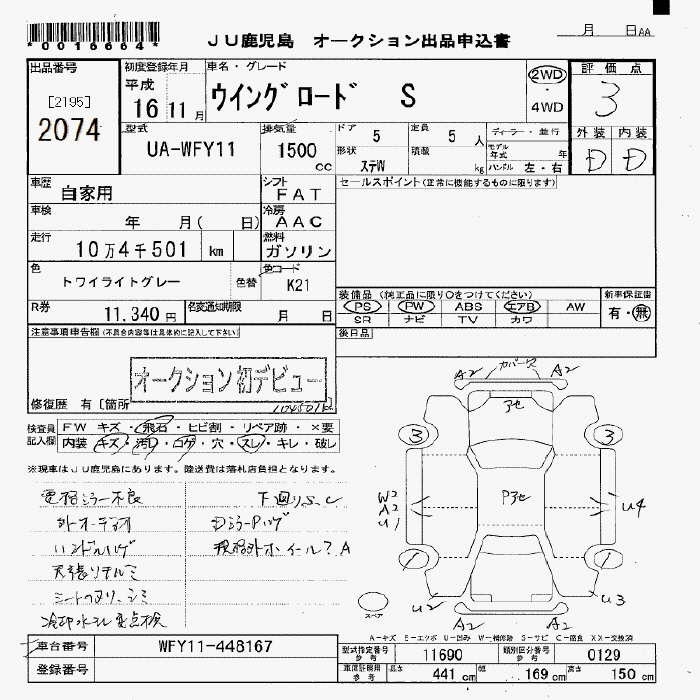 *0016664*
JU鹿児島 オークション出品申込書
月 日AA
出品番号
[2195]
2074
初度登録年月
平成
16 11月
車名・グレード
ウイングロード S
2WD
・
4WD
評価点
3
外装 内装
D D
型式
UA-WFY11
排気量
1500
cc
ドア
5
定員
5 人
形状
ステW
積載
kg
ディーラー・並行
モデル年式 年
ハンドル 左・右
車歴
自家用
シフト
FAT
セールスポイント(正常に機能するものに限ります)
車検
年 月( 日)
冷房
AAC
走行
10万4千501 km
燃料
ガソリン
色
トワイライトグレー
色替
色コード
K21
R券
11,340円
名変通知期限
月 日
装備品(純正品に限り○をつけてください)
PS PW ABS エアB AW
SR ナビ TV カワ
新車保証書
有・無
注意事項申告欄(不具合内容等は具体的に記入して下さい)
後日品
オークション初デビュー
修復歴 有[箇所
104501K
検査員
記入欄
FW キズ・飛石・ヒビ割・リペア跡・×要
内装 キズ・汚れ・コゲ・穴・スレ・キレ・破レ
※現車はJU鹿児島にあります。陸送費は落札店負担となります。
電格ミラー不良
下廻りS、C
外オーディオ
Dミラーハゲ
ハンドルハゲ
規格外ホイール?A
天張りヨゴレ
シートのヌリ、シミ
冷却水モレ要点検
A2 カバー欠 A2
アセ
3 3
W2
A2
U1
Pアセ
U4
1 1
U2 U3
A2 C2 A2
スペア
A-キズ E-エクボ U-凹み W-補修跡 S-サビ C-腐食 XX-交換済
車台番号
WFY11-448167
登録番号
型式指定番号
参考
11690
類別区分番号
参考
0129
車庫証明用
参考
長さ 441 cm 幅 169 cm 高さ 150 cm